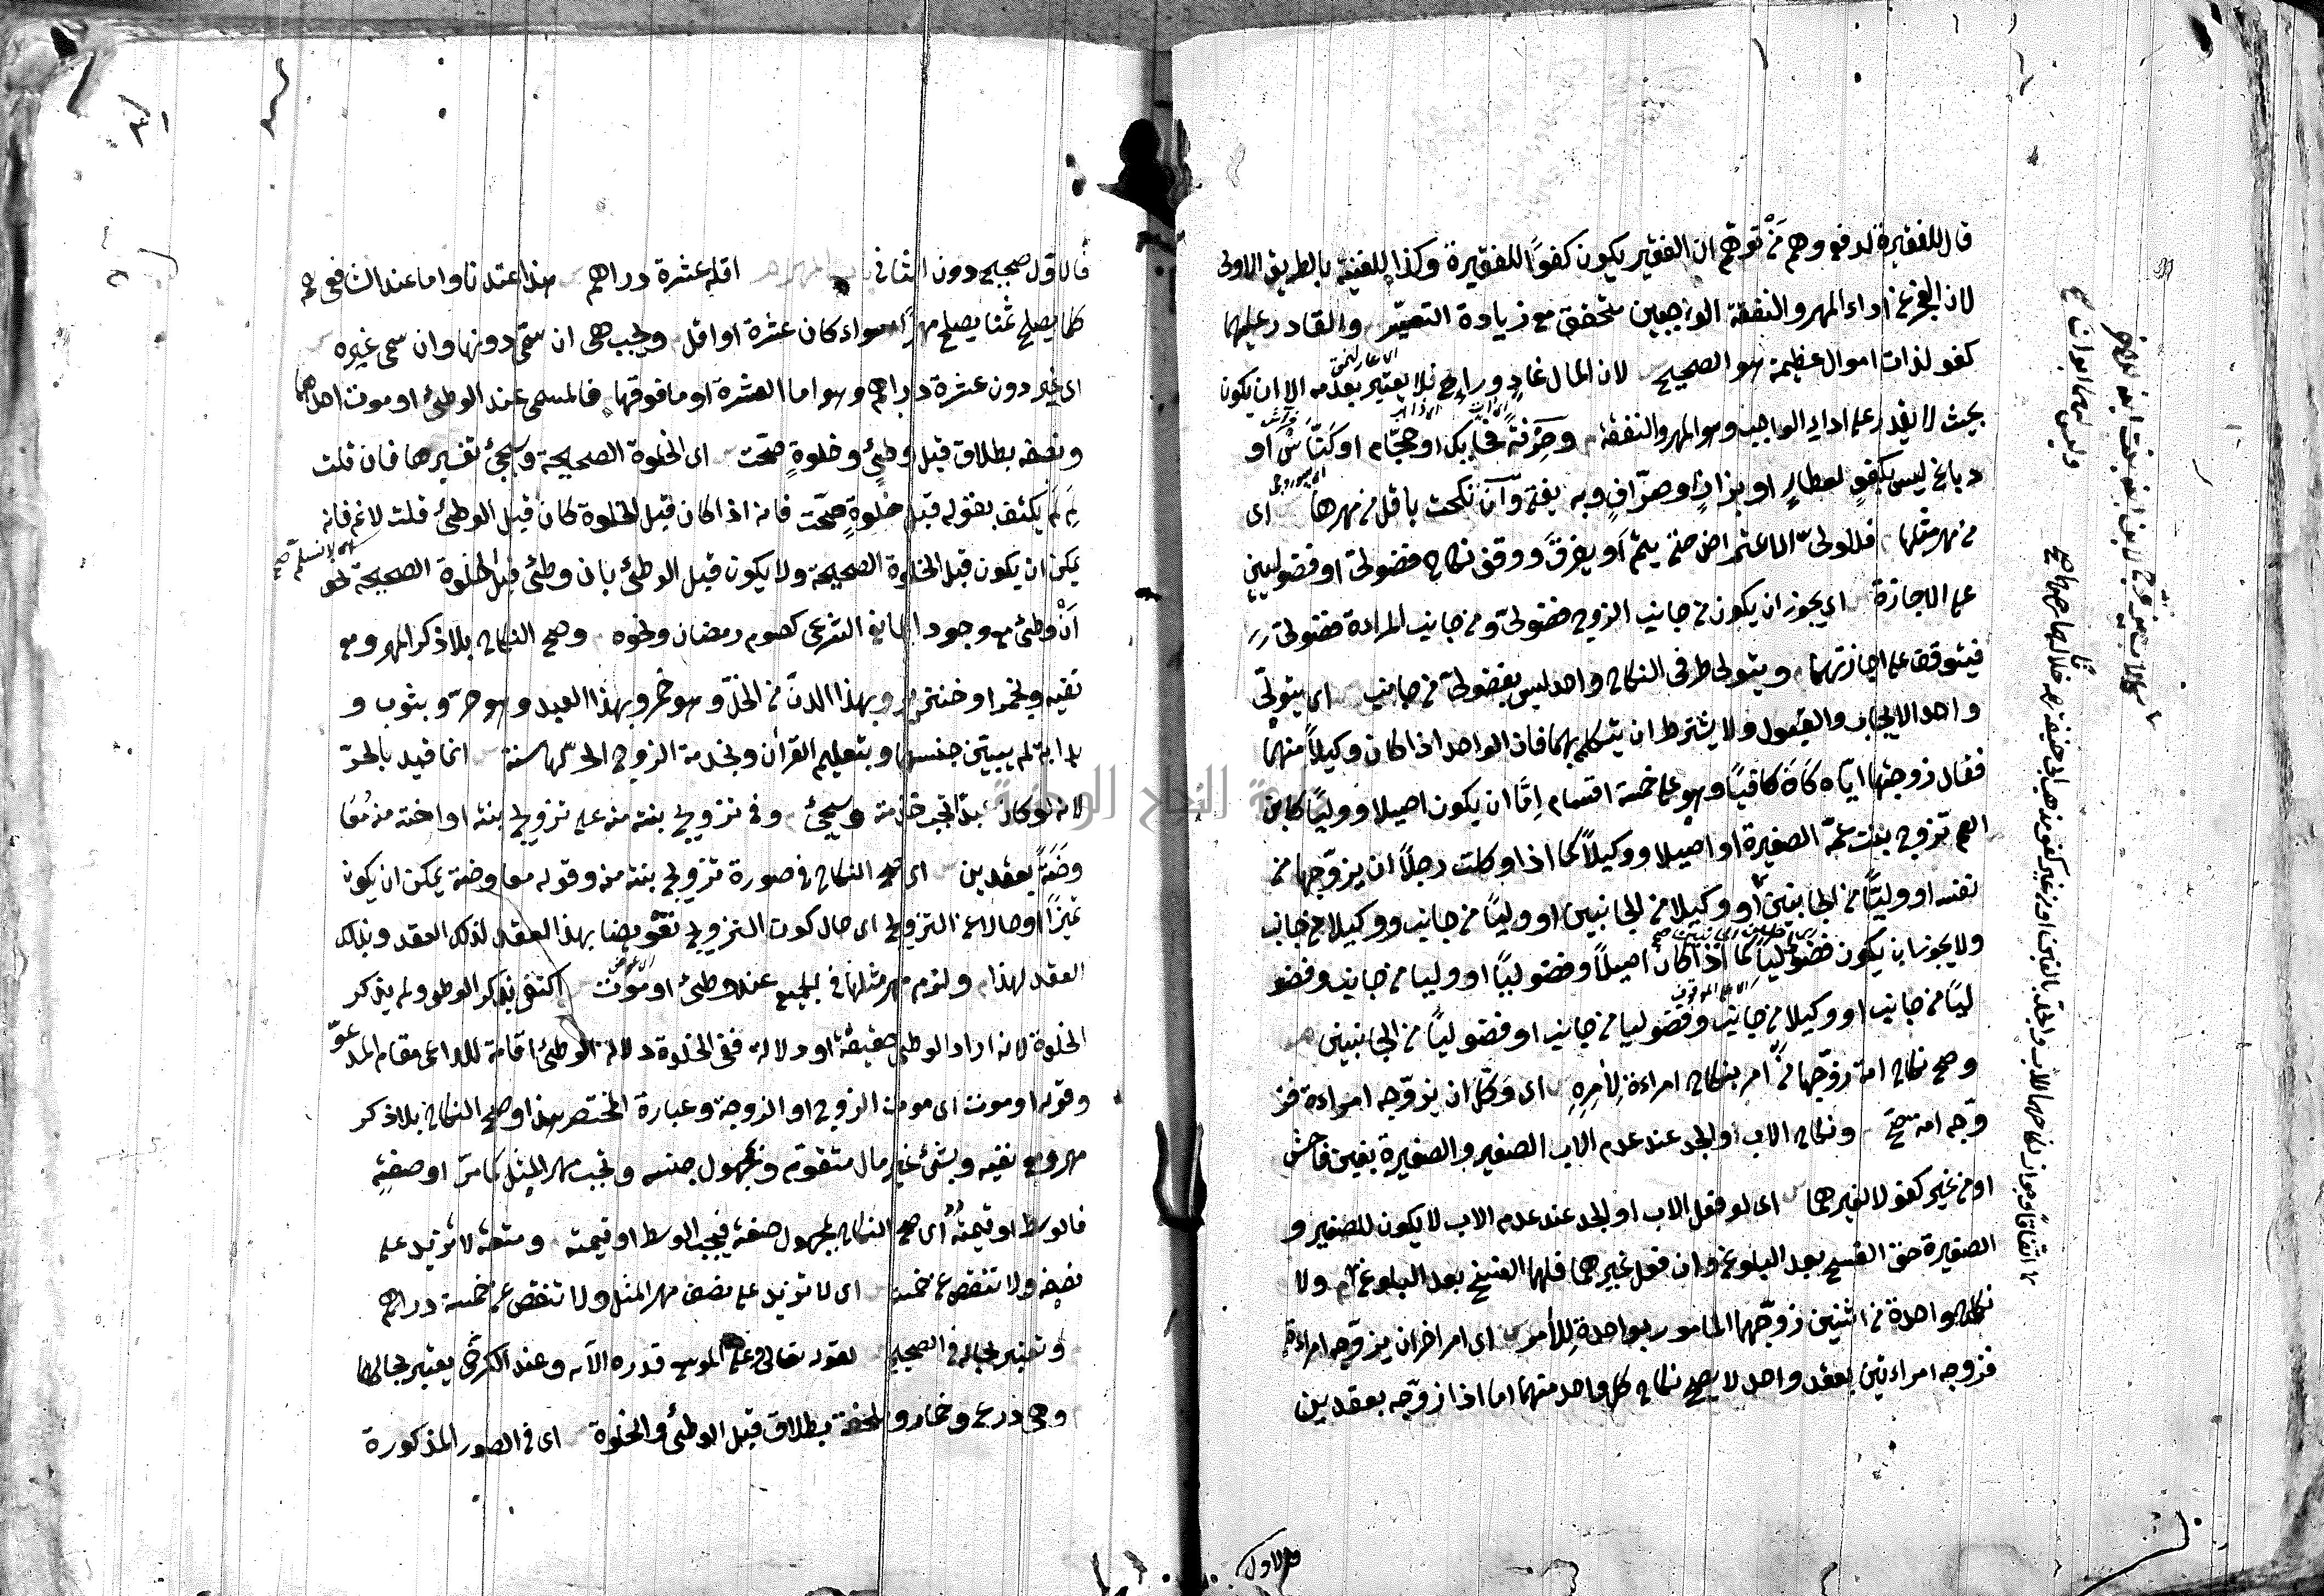 قال للفقيرة لدفع وهم مَنْ توهّم ان الفقير يكون كفوًا للفقيرة وكذا للغنية بالطريق الاولى
لان العجز عن اداء المهر والنفقة الواجبين متحقق مع زيادة التعيّر والقادر عليهما
كفو لذات اموال عظيمة هو الصحيح لان المال غادٍ ورايح فلا يعتبر بعدمه الا ان يكون
بحيث لا يقدر على اداء الواجب وهو المهر والنفقة وحِرْفَةً فحايك او حجّام او كنّاس او
دباغ ليس بكفوٍ لعطارٍ او بزازٍ او صرّافٍ وبه يفتى وان نكحت باقل من مهرها اى
من مهر مثلها فللولىّ الاعتراض حتى يتمّ او يفرق ووقف نكاح فضولىّ او فضوليين
على الاجازة اى يجوز ان يكون من جانب الزوج فضولىّ ومن جانب المراءة فضولىّ
فيتوقف على اجازتهما ويتولى طرفى النكاح واحد ليس بفضولىّ من جانب اى يتولّى
واحد الايجاب والقبول ولا يشترط ان يتكلم بهما فان الواحد اذا كان وكيلاً منهما
فقال زوجتها ايّاه كانَ كافيًا وهو على خمسة اقسام اِمّا ان يكون اصيلا ووليًا كابن
العم تزوج بنت عمّه الصغيرة او اصيلا ووكيلاً كما اذا وكلت رجلًا ان يزوّجها من
نفسه او وليًّا من الجانبين او وكيلا من الجانبين او وليًا من جانب ووكيلا من جانب
ولا يجوز ان يكون فضوليًا كما اذا كان اصيلاً وفضوليًا او وليا من جانب وفضو
ليًا من جانب او وكيلا من جانب وفضوليا من جانب او فضوليًا من الجانبين
وصح نكاح امة زوّجها مَنْ اُمر بنكاح امراءة لِاٰمِرِهِ اى وَكّل ان يزوّجه امراءة فز
وّجه امة صحّ ونكاح الاب او الجد عند عدم الاب الصغير والصغيرة بغبن فاحش
او من غير كفو لا لغيرهما اى لو فعل الاب او الجد عند عدم الاب لا يكون للصغير و
الصغيرة حق الفسخ بعد البلوغ وان فعل غيرهما فلهما الفسخ بعد البلوغ ولا
نكاح واحدة من اثنين زوّجهما المامور بواحدة لِلاٰمر اى امر اخر ان يزوّجه امراءة
فزوجه امراءتين بعقد واحد لا يصح نكاح كل واحد منهما اما اذا زوّجه بعقدين
فالاول
فالاول صحيح دون الثانى باب المهر اقله عشرة دراهم هذا عندنا واما عند الشافعى
كلما يصلح ثمنا يصلح مهرًا سواء كان عشرة او اقل ويجب هى ان سمّى دونها وان سمى غيره
اى غير دون عشرة دراهم وهو اما العشرة او ما فوقها فالمسمى عند الوطئ او موت احدهما
ونصفه بطلاق قبل وطئٍ وخلوةٍ صحّت اى الخلوة الصحيحة وسيجئ تفسيرها فان قلت
لِمَ لَم يكتف بقوله قبل خلوةٍ صحّت فانه اذا كان قبل الخلوة كان قبل الوطئ قلت لا نم فانه
يمكن ان يكون قبل الخلوة الصحيحة ولا يكون قبل الوطئ بان وطئ قبل الخلوة الصحيحة نحو
اَنْ وطئ مع وجود المانع الشرعى كصوم رمضان ونحوه وصح النكاح بلا ذكر المهر ومع
نفيه وبخمر او خنزير وبهذا الدنّ من الخلّ وهو خمر وبهذا العبد وهو حرّ وبثوب و
بدابة لم يبيّن جنسها وبتعليم القرآن وبخدمة الزوج الحرّ لها سنة انما قيد بالحرّ
لانه لو كان عبدًا تجب خدمة وسيجئ وفى تزويج بنته منه على تزويج بنته او اخته منه مُعَا
وَضَةً بعقدين اى صح النكاح فى صورة تزويج بنته منه وقوله معاوضة يمكن ان يكون
تميزًا او حالا عن التزويج اى حال كون التزويج تعويضا بهذا العقد لذلك العقد وبذلك
العقد لهذا ولزم مهر مثلها فى الجميع عند وطئ او موت اكتفى بذكر الوطى ولم يذكر
الخلوة لانه اراد الوطى حقيقة او دلالة ففى الخلوة دلالة الوطئ اقامة للداعى مقام المدعوّ
وقوله او موت اى موت الزوج او الزوجة وعبارة المختصر هذا وصح النكاح بلا ذكر
مهر ومع نفيه وبشئ غير مال متقوّم ومجهول جنسه وتجب مهر المثل كما مرّ او صفته
فالوسط او قيمتُه اى صح النكاح بمجهول صفته فيجب الوسط او قيمته ومتعة لا تزيد على
نصفه ولا تنقص عن خمسة اى لا تزيد على نصف مهر المثل ولا تنقص عن خمسة دراهم
وتعتبر بحاله فى الصحيح لقوله تعالى وعلى الموسع قدره الآيه وعند الكرخى يعتبر بحالها
وهى درع وخمار وملحفة بطلاق قبل الوطئ والخلوة اى فى الصور المذكورة